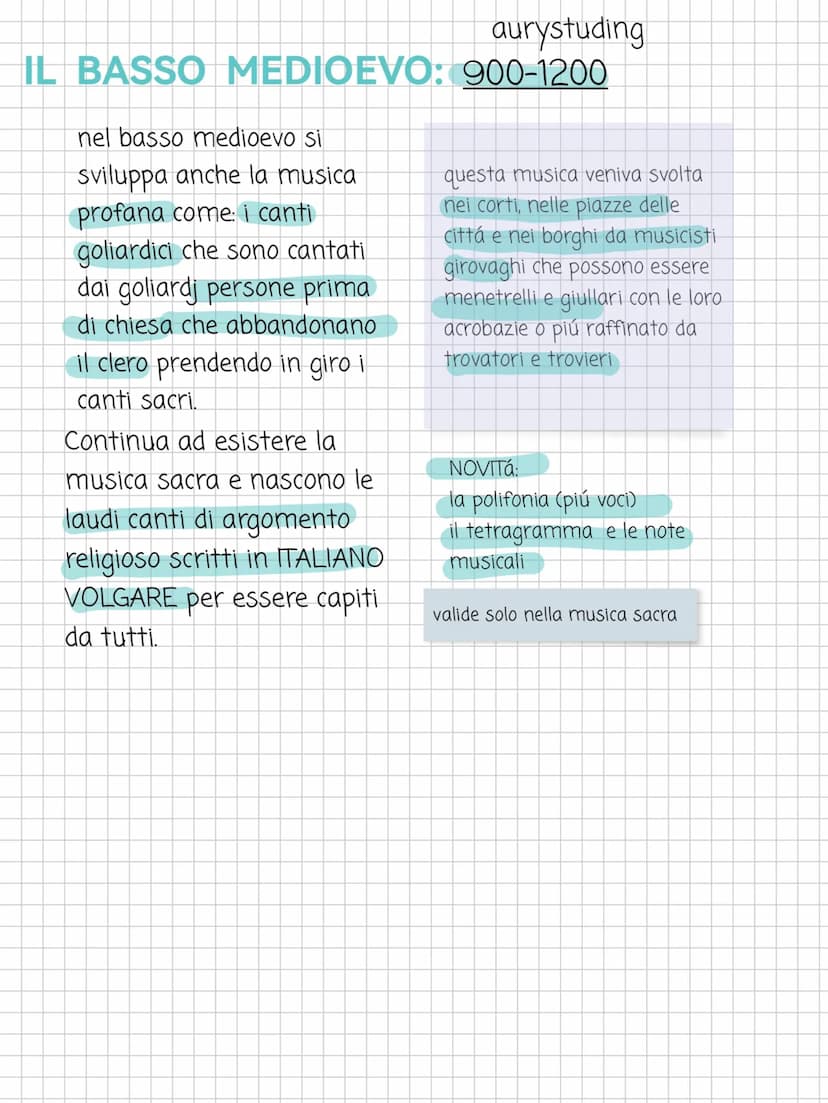 aurystuding
IL BASSO MEDIOEVO: 900-1200
nel basso medioevo si
sviluppa anche la musica
profana come: i canti
goliardici che sono cantati
dai goliardj persone prima
di chiesa che abbandonano
il clero prendendo in giro i
canti sacri.
Continua ad esistere la
musica sacra e nascono le
laudi canti di argomento
religioso scritti in ITALIANO
VOLGARE per essere capiti
da tutti.
questa musica veniva svolta
nei corti, nelle piazze delle
cittá e nei borghi da musicisti
girovaghi che possono essere
menetrelli e giullari con le loro
acrobazie o piú raffinato da
trovatori e trovieri
NOVITá:
la polifonia (piú voci)
il tetragramma e le note
musicali
valide solo nella musica sacra